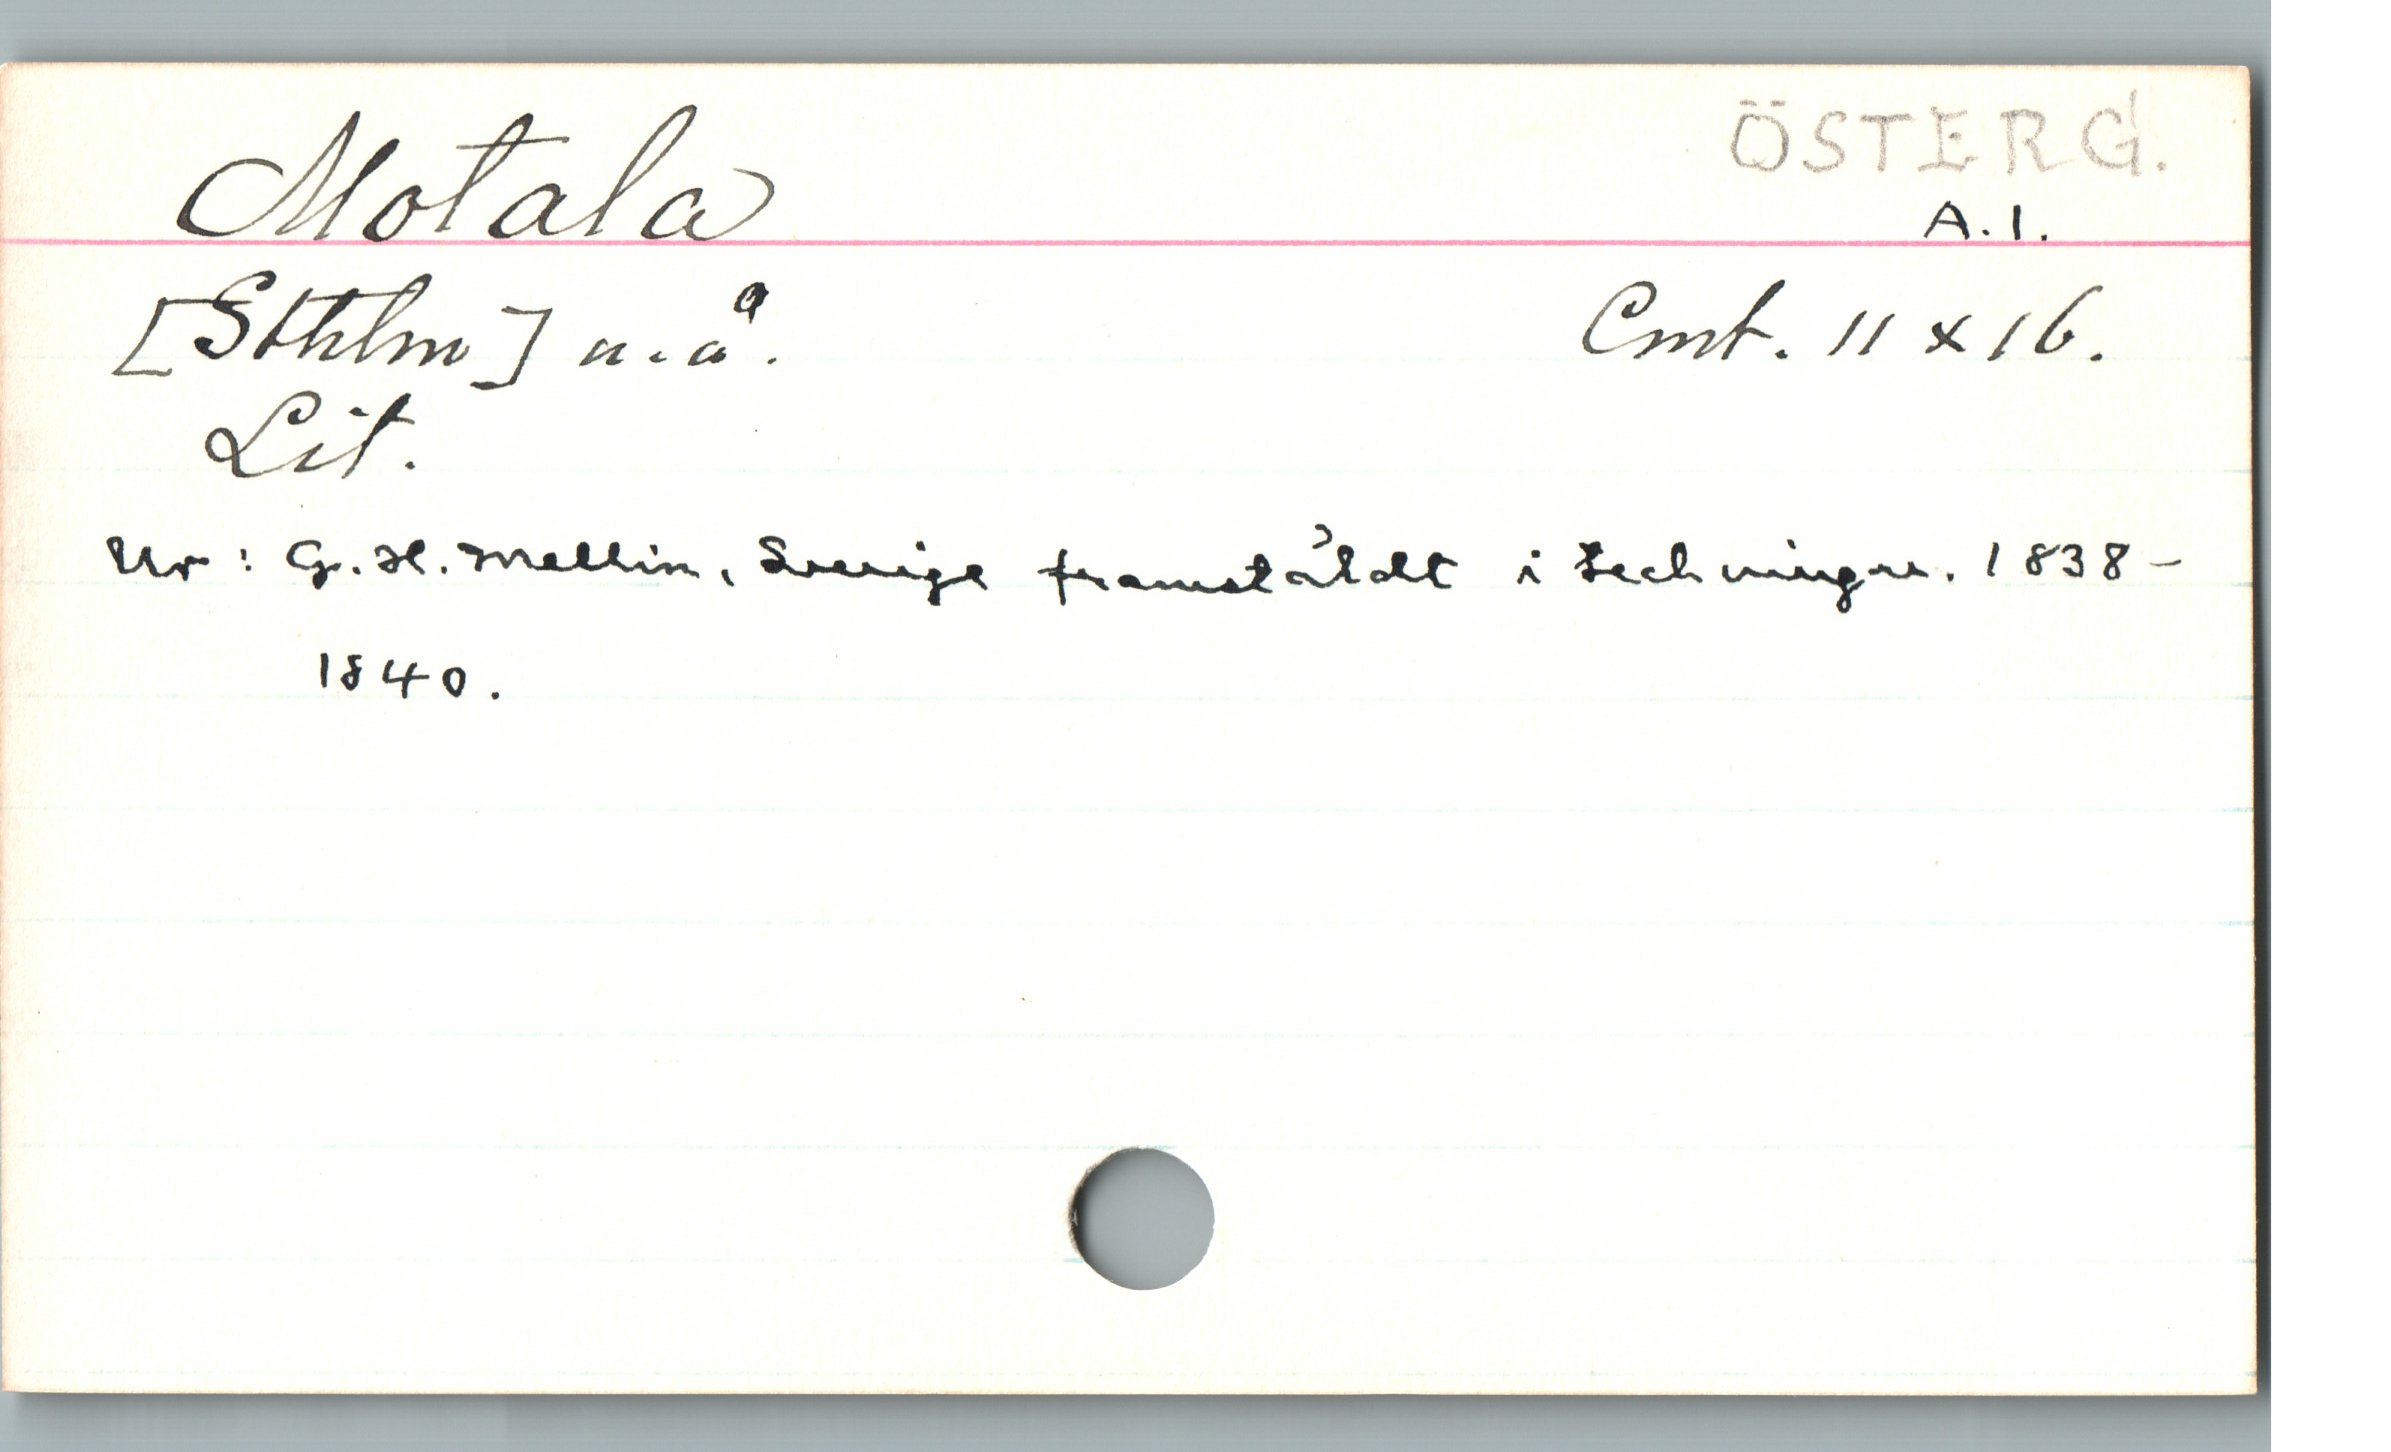 ÖSTERG.
Motala A.1.
[Sthlm] u.å. Cmt. 11 x 16.
Lit.
Ur: G. H. Mellin, Sverige framstäldt i teckningar. 1838-
1840.